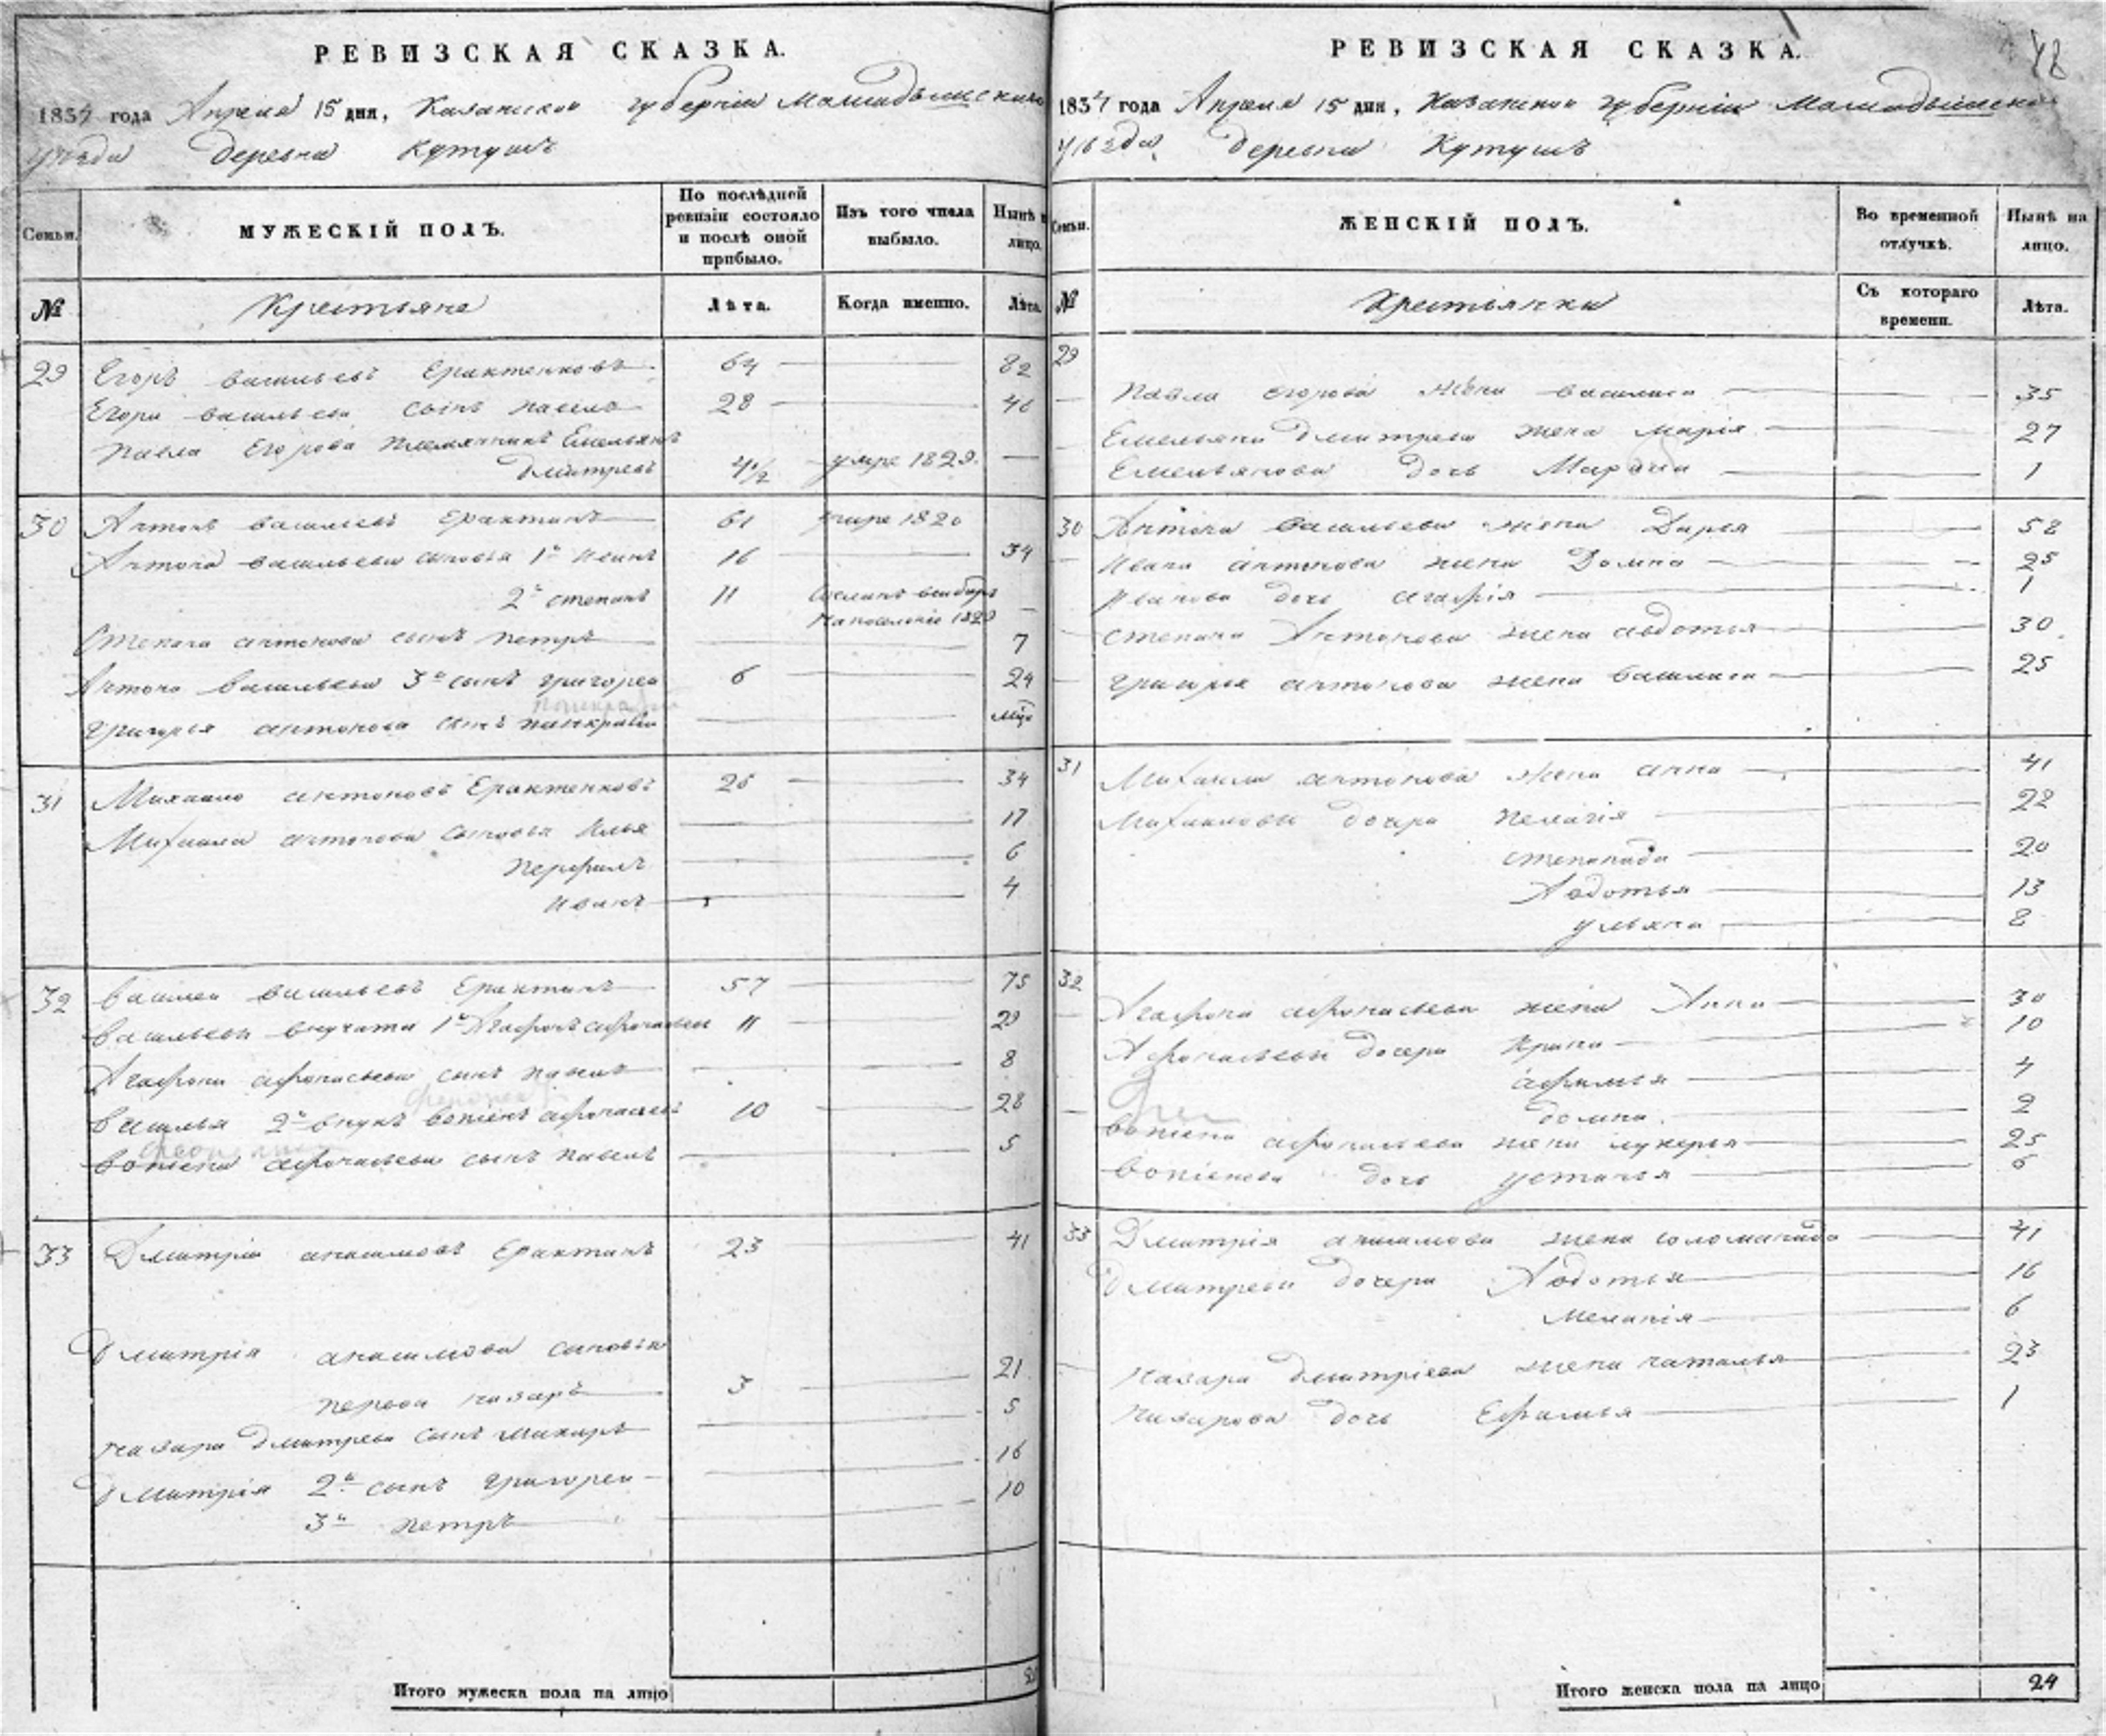 РЕВИЗСКАЯ СКАЗКА.
1834 года Апреля 15 дня, Казанской губерніи Мамадышскаго
уѣзда деревня Кутушъ
Семьи.
МУЖЕСКІЙ ПОЛЪ.
По послѣдней ревизіи состояло и послѣ оной прибыло.
Изъ того числа выбыло.
Нынѣ на лицо.
№
Крестьяне
Лѣта.
Когда именно.
Лѣта.
29 Егоръ васильевъ Ерактенковъ 64 82
Егора васильева сынъ павелъ 28 46
павла Егорова племянникъ Емельянъ
дмитревъ 4½ умре 1829.
30 Антонъ васильевъ Ерактинъ 61 умре 1820
Антона васильева сыновья 1й иванъ 16 34
2й степанъ 11
на поселение 1829
Степана антонова сынъ петръ 7
Антона васильева 3й сынъ григореи 6 24
григорья антонова сынъ панкратіи
31 Михаило антоновъ Ерактенковъ 34
Михаила антонова сыновья Илья 17
перфилъ 6
иванъ 4
32 василеи васильевъ Ерактинъ 57 75
васильевы внучата 1й Агафонъ афонасьевъ 11 29
Агафона афонасьева сынъ павелъ 8
василья 2й внукъ афонасьевъ 10 28
афонасьева сынъ павелъ 5
33 Дмитріи анисимовъ Ерактинъ 23 41
Дмитрія анисимова сыновья
первои назаръ 3 21
назара дмитрева сынъ макаръ 5
Дмитрія 2й сынъ григореи 16
3й петръ 10
Итого мужеска пола на лицо
48
РЕВИЗСКАЯ СКАЗКА.
1834 года Апреля 15 дня, Казанской губерніи Мамадышской
уѣзда деревня Кутушъ
Семьи.
ЖЕНСКІЙ ПОЛЪ.
Во временной отлучкѣ.
Нынѣ на лицо.
№
Крестьянки
Съ котораго времени.
Лѣта.
29
павла егорова жена василиса 35
Емельяна дмитрева жена марія 27
Емельянова дочь 1
30 Антона васильева жена Дарья 58
ивана антонова жена Домна 25
иванова дочь агафія 1
степана Антонова жена авдотья 30
григорья антонова жена василиса 25
31 Михаила антонова жена анна 41
Михаиловы дочери пелагія 22
степанида 20
Авдотья 13
ульяна 8
32 Агафона афонасьева жена Анна 30
Афонасьевы дочери Ирина 10
афимья 4
домна 2
афонасьева жена лукерья 25
дочь устинья 6
33 Дмитрія анисимова жена соломанида 41
Дмитревы дочери Авдотья 16
меланія 6
назара дмитріева жена наталья 23
назарова дочь Ефимья 1
Итого женска пола на лицо 24